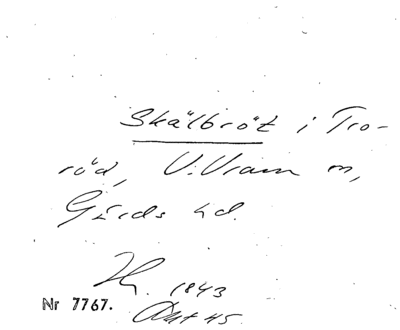 Skälbröt i Tro-
röd, V. Vram sn,
Gärds hd.
1943
Nr 7767.